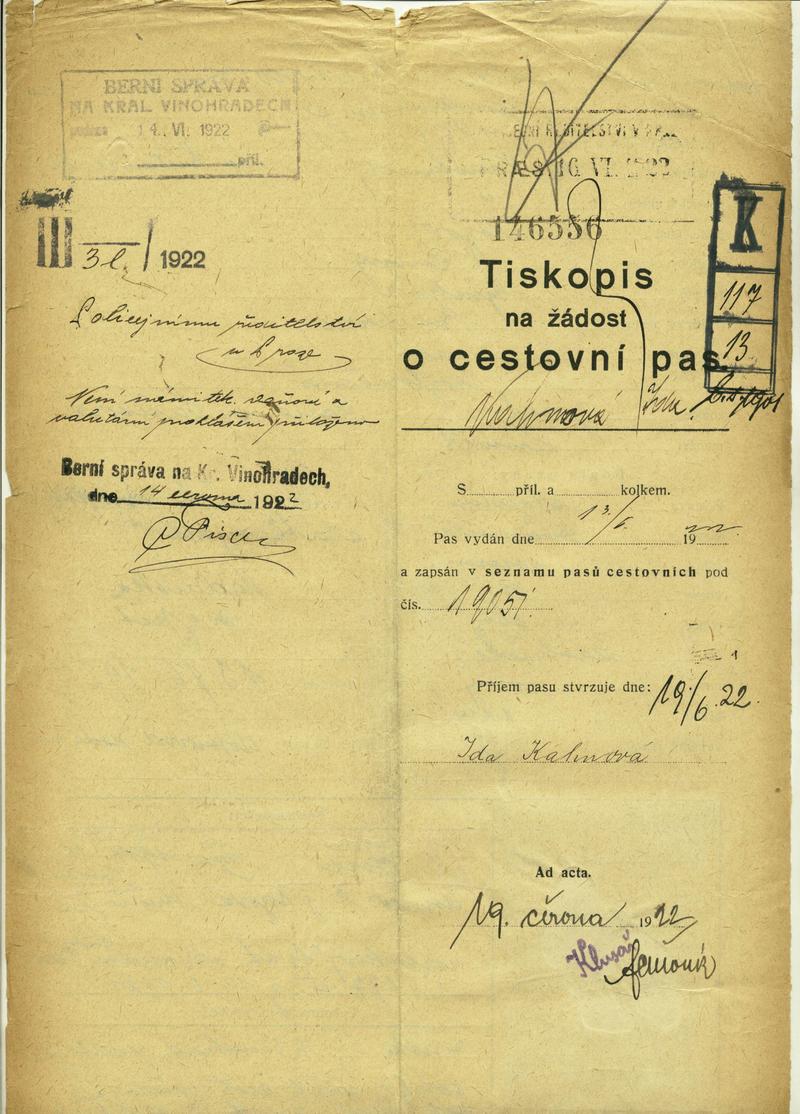 BERNÍ SPRÁVA
NA KRÁL. VINOHRADECH
14. VI. 1922
příl.
III 31. / 1922
Policejnímu ředitelství
v Praze
Není námitek.
valutární prohlášení přiloženo
Berní správa na Kr. Vinohradech,
dne 14 června 1922
PRAES. 16. VI. 1922
146556
K
117
13
Tiskopis
na žádost
o cestovní pas.
Kahnová Ida
S příl. a kolkem.
Pas vydán dne 13/6 1922
a zapsán v seznamu pasů cestovních pod
čís. 19051
Příjem pasu stvrzuje dne: 19/6.22.
Ida Kahnová
Ad acta.
19. června 1922